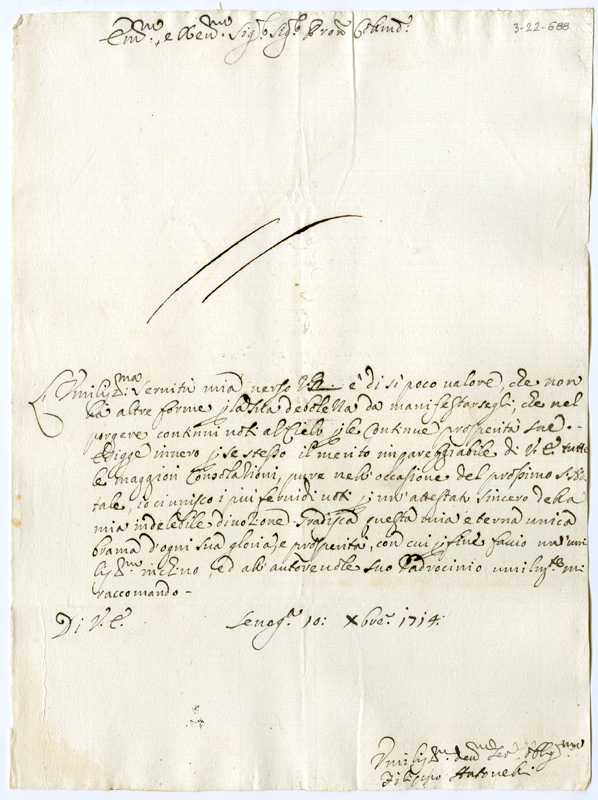 3-22-688
Em.mo, e Rev.mo Sig.r Sig.r Pron Colend.o
L'Umiliss.ma servitù mia verso V.E. è di sì poco valore, che non
hà altre forme p la sua debolezza da manifestarsegli, che nel
porgere continui voti al Cielo p le continue prosperità sue.
Esigge invero p se stesso il merito impareggiabile di V.E. tutte
le maggiori consolationi, pure nell'occasione del prossimo S. Na
tale, io ci unisco i più fervidi voti p un'attestato sincero della
mia indelebile divozione. Gradisca questa mia eterna unica
brama d'ogni sua gloria, e prosperità, con cui p fine faccio un'umi
liss.mo inchino, ed all'autorevole suo Padrocinio umiliss.te mi
raccomando -
Di V.E.
Senog.a 10: Xbre. 1714:
Umiliss.mo dev.mo Ser.e obblig.mo
Filippo Antonelli